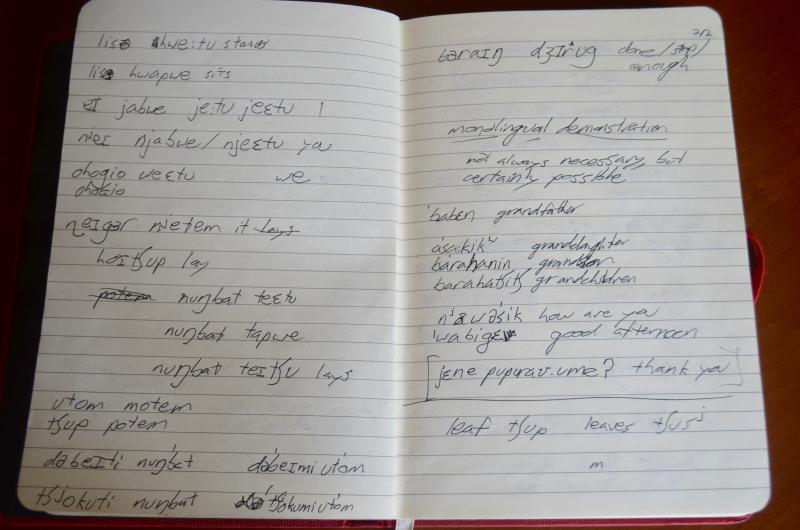 lisə hwe:tu stands
lisə hwapwe sits
ɛɪ jabwe je:tu jeɛtu I
nʲeɪ njabwe/ njeɛtu you
ohogio ueɛtu we
ohokio
ɳeɪgər nʲetem it lays
hoɪtʃup lay
potem nuŋbat teɛtu
nuŋbat tapwe
nuŋbat teɪtʃu lays
utom motem
tʃup potem
dəbeɪti nuŋbət dəbeɪmi utom
tʃʲokuti nuŋbat tʃokumi utom
2/2
bəraɪŋ dʒɪrug done/stop/
enough
monolingual demonstration
not always necessary, but
certainly possible
ˈbabɛn grandfather
asakikʰ granddaughter
barahanin grandson
barahatʃitʃ grandchildren
nʲəwəsik how are you
good afternoon
[jene pupurav.ume? thank you]
leaf tʃup leaves tʃusʲ
m